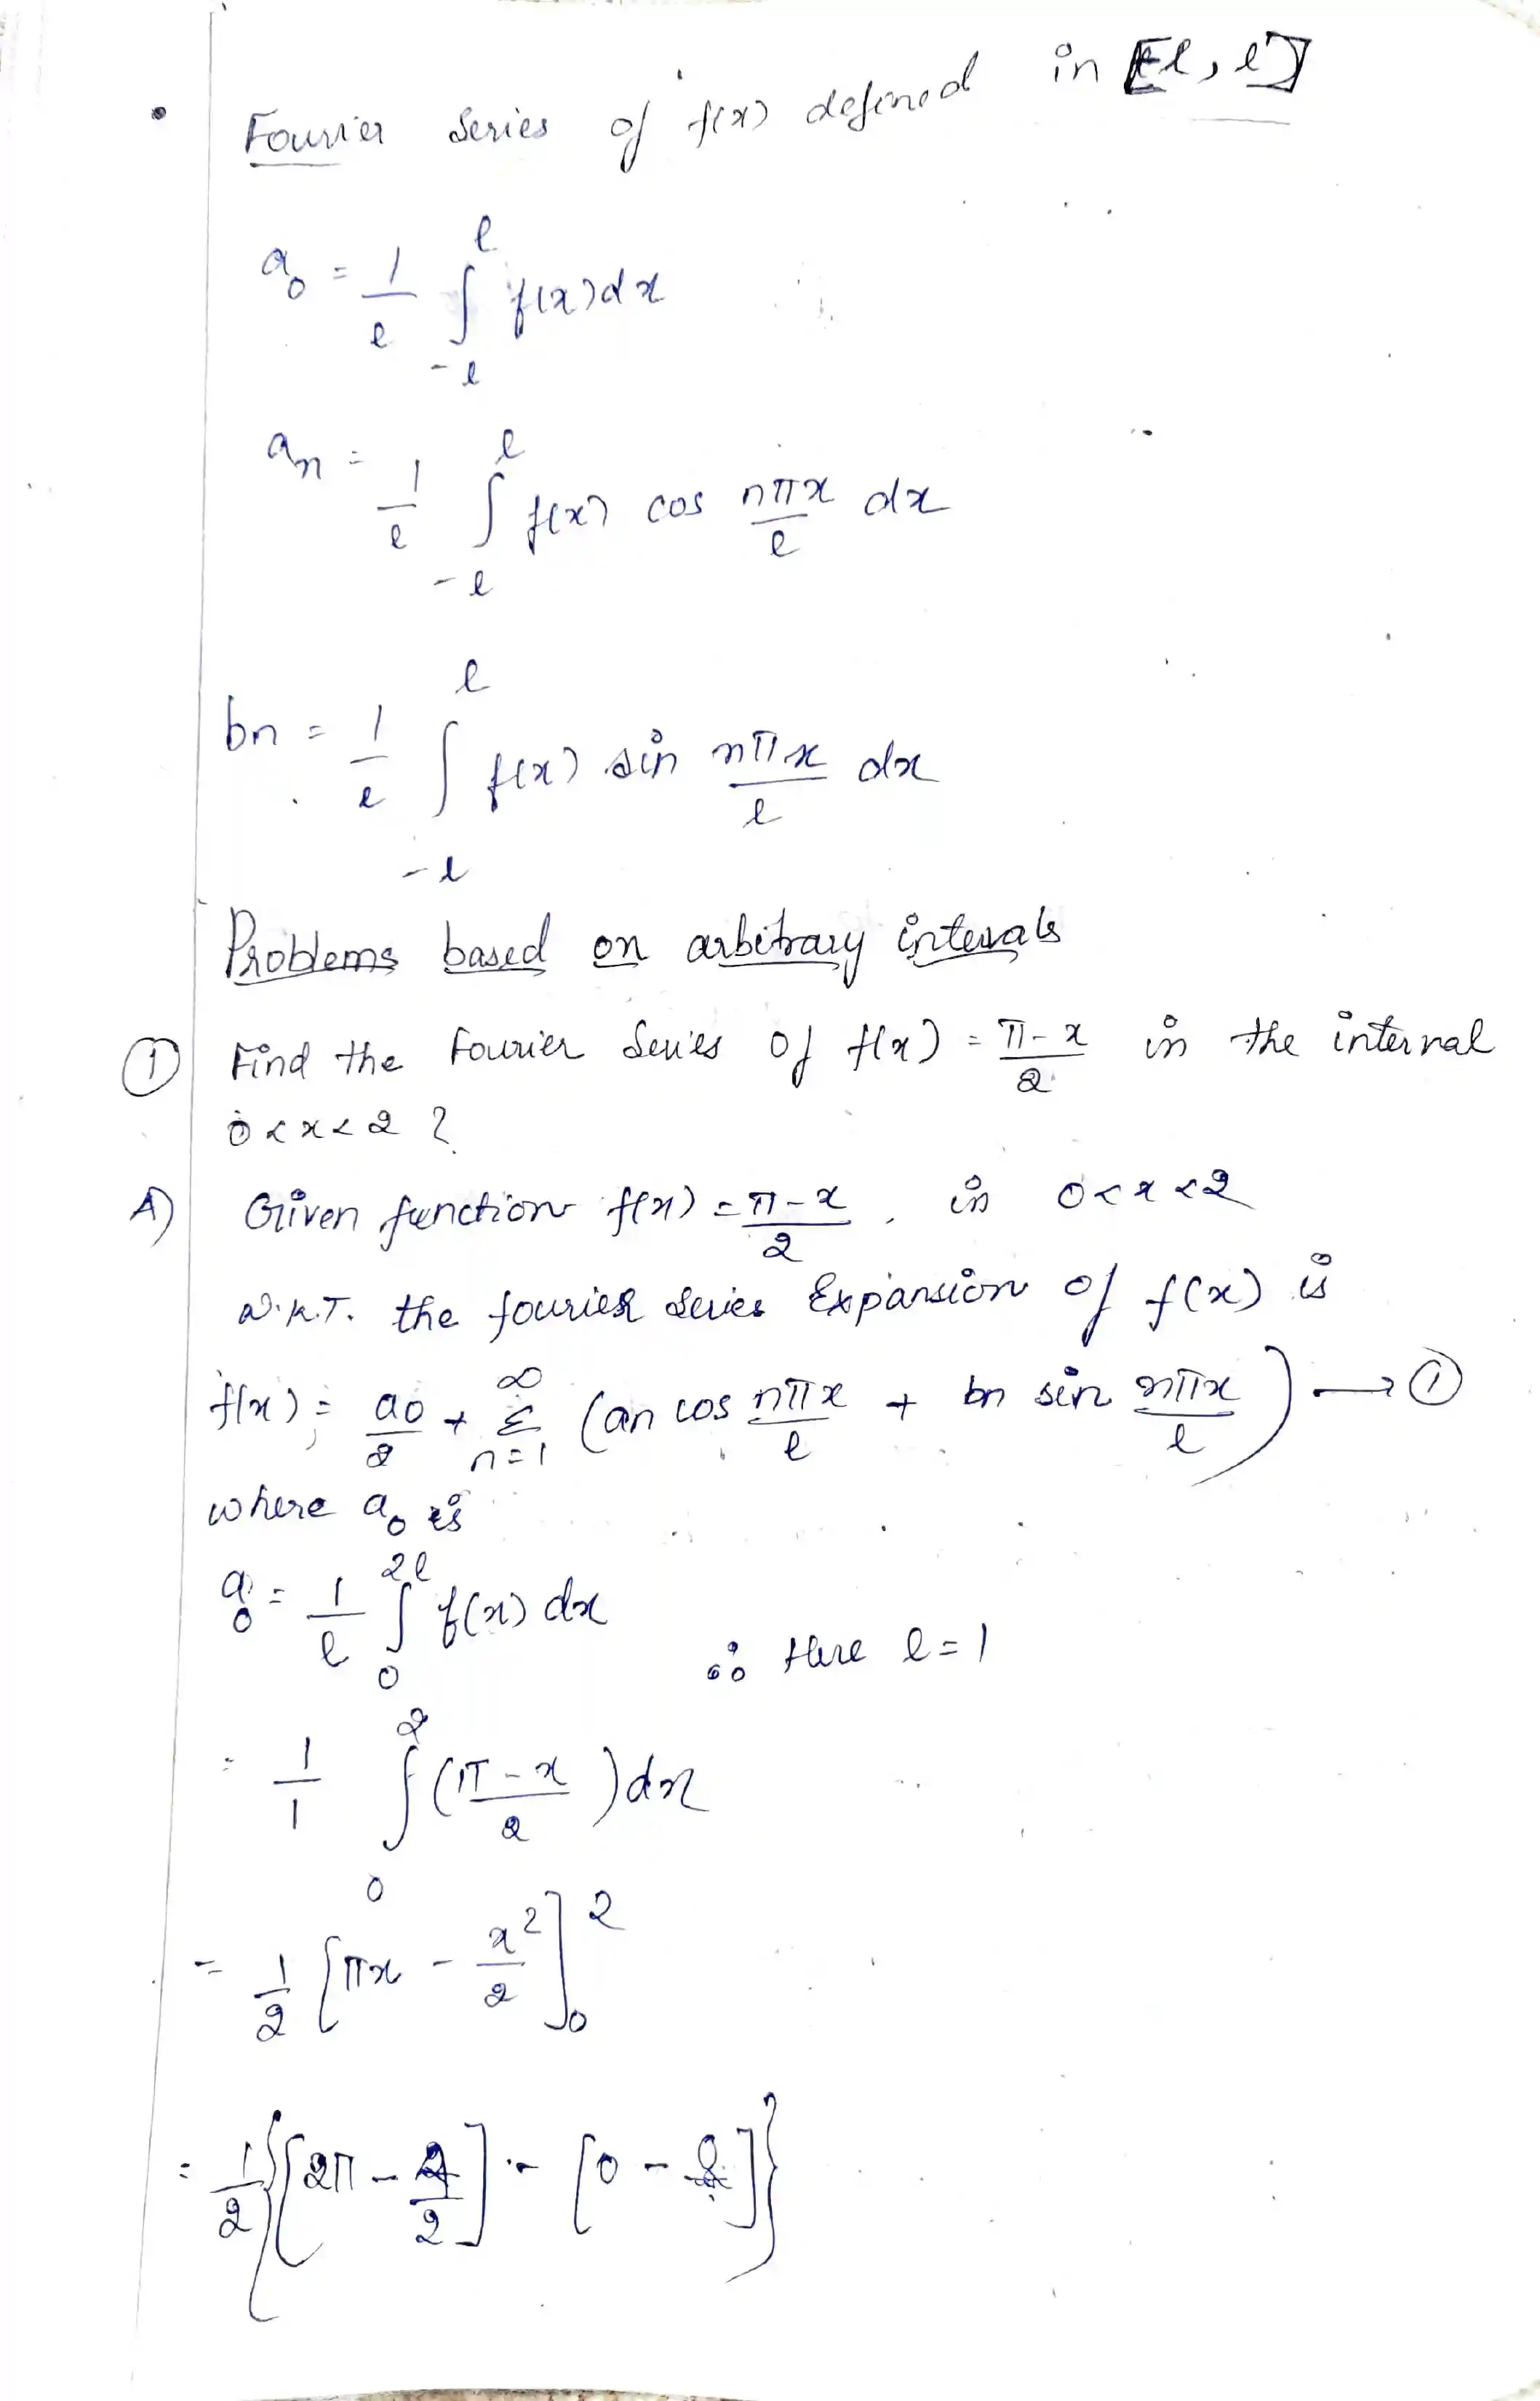 • Fourier Series of f(x) defined in [-l, l]
a₀ = 1/l ∫_{-l}^{l} f(x)dx
an = 1/l ∫_{-l}^{l} f(x) cos nπx/l dx
bn = 1/l ∫_{-l}^{l} f(x) sin nπx/l dx
Problems based on arbitrary intervals
① Find the Fourier Series of f(x) = π-x/2 in the interval
0<x<2 ?
A) Given function f(x) = π-x/2, in 0<x<2
W.K.T. the fourier series Expansion of f(x) is
f(x) = a0/2 + Σ_{n=1}^{∞} (an cos nπx/l + bn sin nπx/l) → ①
where a₀ is
a₀ = 1/l ∫_{0}^{2l} f(x) dx
∴ Here l=1
= 1/1 ∫_{0}^{2} (π-x/2)dx
= 1/2 [πx - x²/2]₀²
= 1/2 {[2π - 4/2] - [0 - 0]}